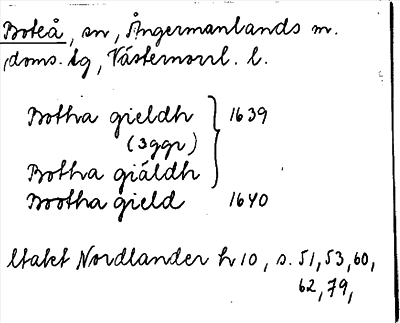 Boteå, sn, Ångermanlands m.
doms. tg, Västernorrl. l.
Botha gieldh } 1639
(3ggr)
Botha giäldh
Bootha gield 1640
Utakt Nordlander h 10, s. 51, 53, 60,
62, 79,